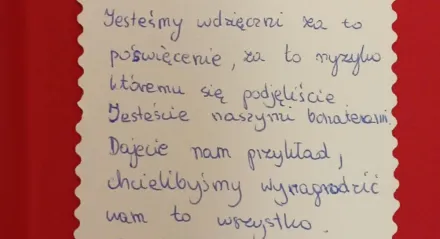 Jesteśmy wdzięczni za to
poświęcenie, za to ryzyko
któremu się podjęliście
Jesteście naszymi bohaterami.
Dajecie nam przykład,
chcielibyśmy wynagrodzić
wam to wszystko.